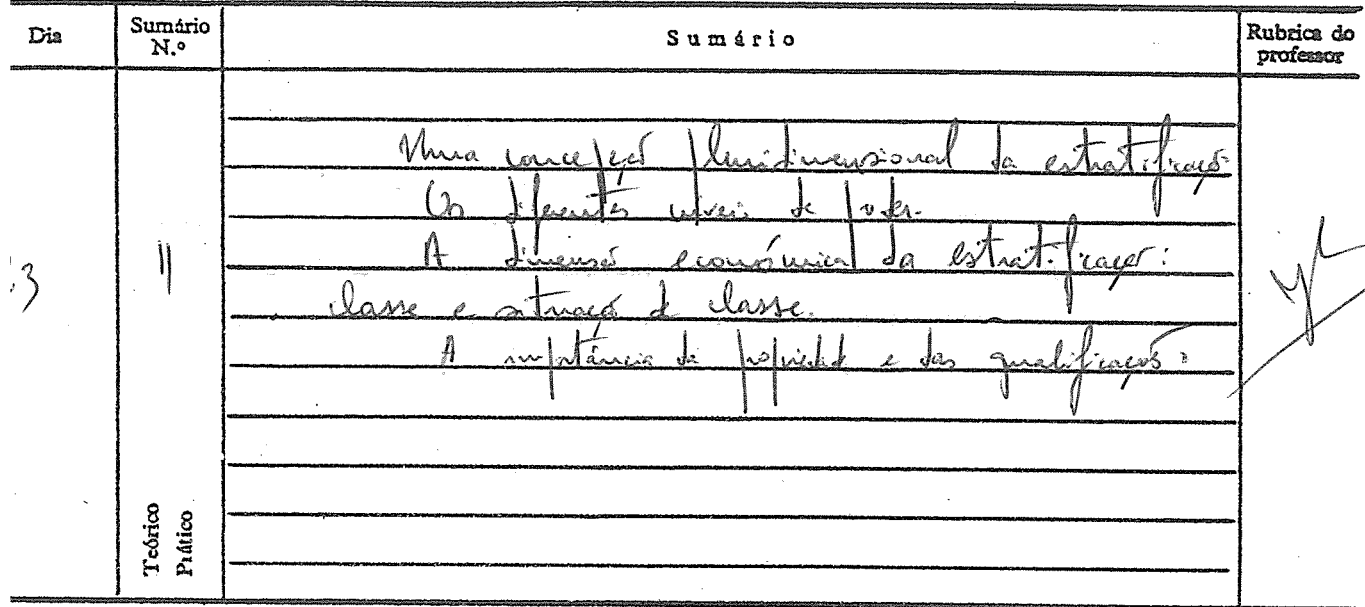 Dia
Sumário N.º
Sumário
Rubrica do professor
Uma concepção pluridimensional da estratificação
Os diferentes níveis de poder.
3
11
A dimensão económica da estratificação:
classe e situação de classe.
A importância da propriedade e das qualificações.
Teórico
Prático